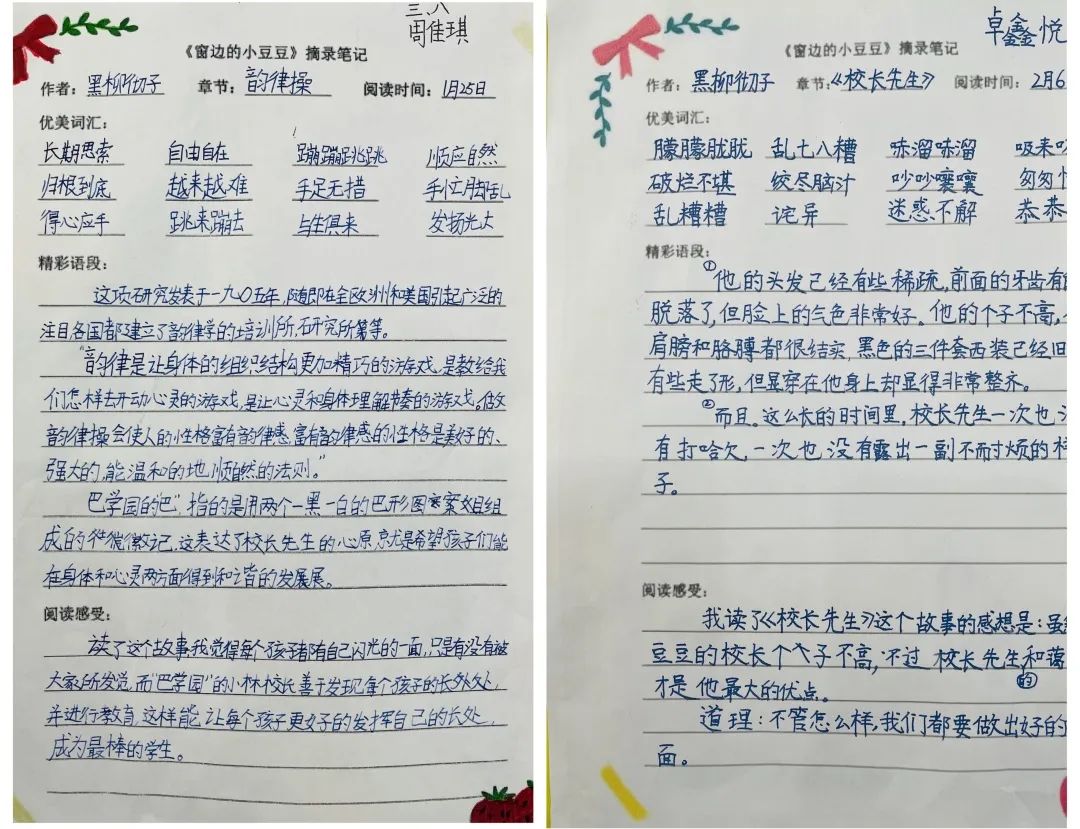 三、八
周佳琪
《窗边的小豆豆》摘录笔记
作者：黑柳彻子 章节：韵律操 阅读时间：1月25日
优美词汇：
长期思索 自由自在 蹦蹦跳跳 顺应自然
归根到底 越来越难 手足无措 手忙脚乱
得心应手 跳来蹦去 与生俱来 发扬光大
精彩语段：
这项研究发表于一九〇五年，随即在全欧洲和美国引起广泛的
注目，各国都建立了韵律学的培训所，研究所等。
"韵律是让身体的组织结构更加精巧的游戏，是教给我
们怎样去开动心灵的游戏，是让心灵和身体理解节奏的游戏。做
韵律操会使人的性格富有韵律感，富有韵律感的性格是美好的、
强大的，能温和的地顺自然的法则。"
巴学园的"巴"，指的是用两个一黑一白的巴形图案组
成的徽记，这表达了校长先生的心愿，就是希望孩子们能
在身体和心灵两方面得到和谐的发展。
阅读感受：
读了这个故事，我觉得每个孩子都有自己闪光的一面，只是有没有被
大家所发觉，而"巴学园"的小林校长善于发现每个孩子的长处，
并进行教育，这样能让每个孩子更好的发挥自己的长处，
成为最棒的学生。
卓鑫悦
《窗边的小豆豆》摘录笔记
作者：黑柳彻子 章节：《校长先生》 阅读时间：2月6
优美词汇：
朦朦胧胧 乱七八糟 哧溜哧溜 吸来
破烂不堪 绞尽脑汁 吵吵嚷嚷 匆匆
乱糟糟 诧异 迷惑不解 恭恭
精彩语段：
①他的头发已经有些稀疏，前面的牙齿有
脱落了，但脸上的气色非常好。他的个子不高，
肩膀和胳膊都很结实，黑色的三件套西装已经旧
有些走了形，但显穿在他身上却显得非常整齐。
②而且。这么长的时间里，校长先生一次也
有打哈欠，一次也没有露出一副不耐烦的样
子。
阅读感受：
我读了《校长先生》这个故事的感想是：虽
豆豆的校长个子不高，不过校长先生的和蔼
才是他最大的优点。
道理：不管怎么样，我们都要做出好的
面。